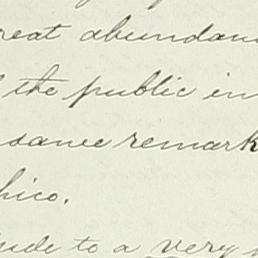 reat abundan
the public in
same remark
hico.
ude to a very